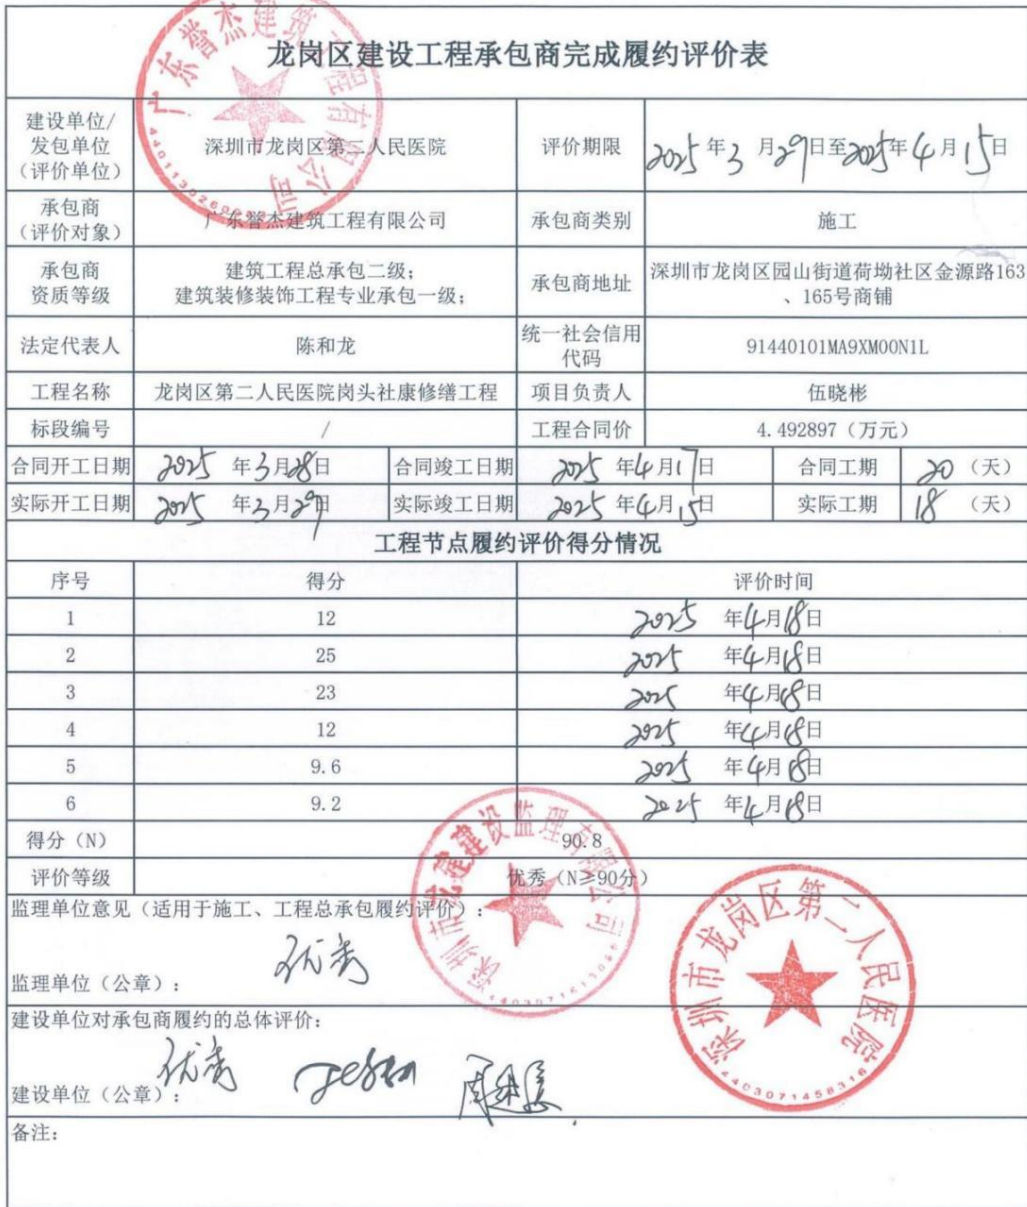 龙岗区建设工程承包商完成履约评价表
建设单位/
发包单位
（评价单位）
深圳市龙岗区第二人民医院
评价期限
2025年3月29日至2025年4月15日
承包商
（评价对象）
广东誉杰建筑工程有限公司
承包商类别
施工
承包商
资质等级
建筑工程总承包二级；
建筑装修装饰工程专业承包一级；
承包商地址
深圳市龙岗区园山街道荷坳社区金源路163
、165号商铺
法定代表人
陈和龙
统一社会信用
代码
91440101MA9XM00N1L
工程名称
龙岗区第二人民医院岗头社康修缮工程
项目负责人
伍晓彬
标段编号
/
工程合同价
4.492897（万元）
合同开工日期 2025年3月28日 合同竣工日期 2025年4月17日 合同工期 20（天）
实际开工日期 2025年3月29日 实际竣工日期 2025年4月15日 实际工期 18（天）
工程节点履约评价得分情况
序号 得分 评价时间
1 12 2025年4月18日
2 25 2025年4月18日
3 23 2025年4月18日
4 12 2025年4月18日
5 9.6 2025年4月18日
6 9.2 2025年4月18日
得分（N） 90.8
评价等级 优秀（N≥90分）
监理单位意见（适用于施工、工程总承包履约评价）：
优秀
监理单位（公章）：
建设单位对承包商履约的总体评价：
优秀
建设单位（公章）：
备注：
广东誉杰建筑工程有限公司
深圳市龙建建设监理有限公司
深圳市龙岗区第二人民医院
4403071458316